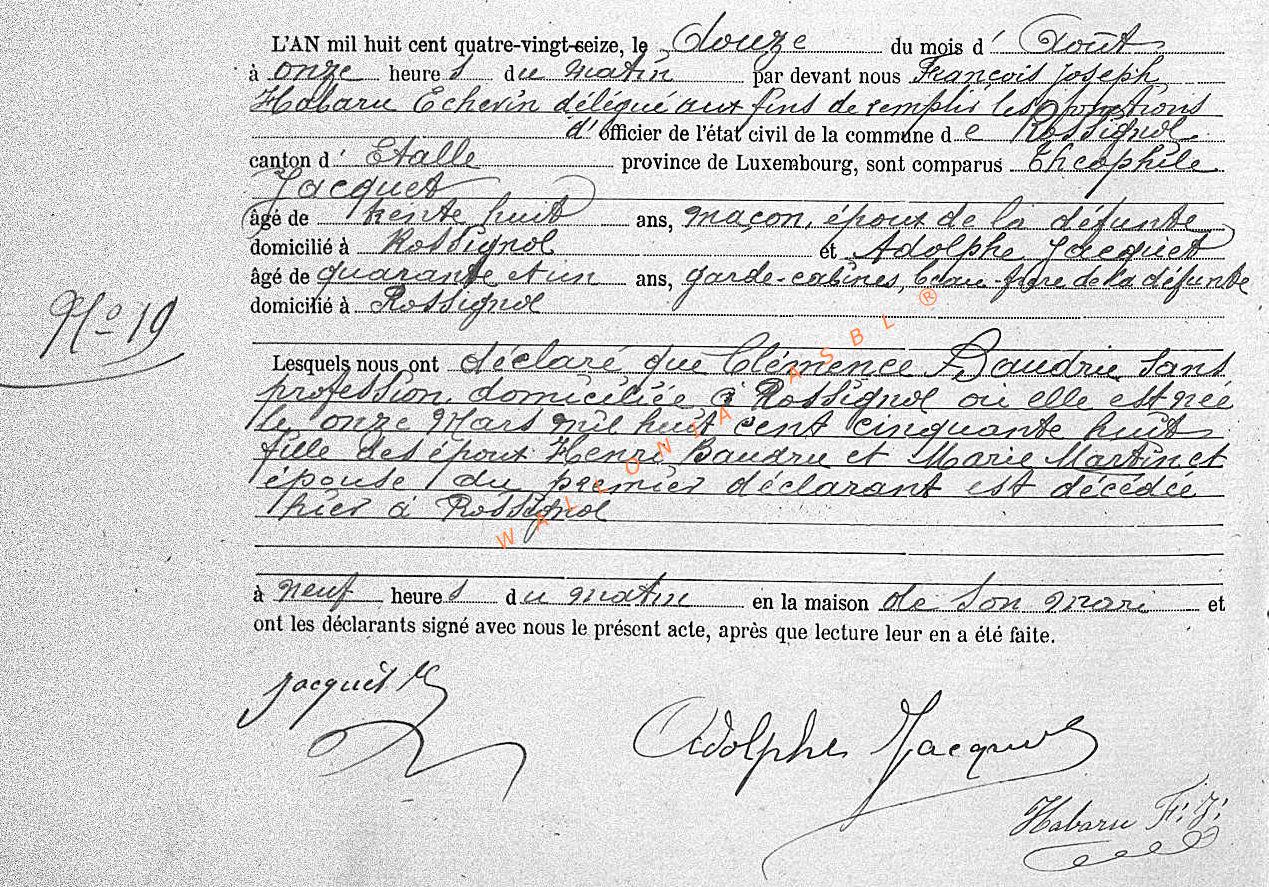 L'AN mil huit cent quatre-vingt-seize, le douze du mois d' Août
à onze heures du matin par devant nous François Joseph
Habaru Echevin délégué aux fins de remplir les fonctions
d'officier de l'état civil de la commune de Rossignol
canton d' Etalle province de Luxembourg, sont comparus Théophile
Jacquet
âgé de trente huit ans, maçon, époux de la défunte
domicilié à Rossignol et Adolphe Jacquet
âgé de quarante et un ans, garde-cabines, beau-frère de la défunte
domicilié à Rossignol
No 19
Lesquels nous ont déclaré que Clémence Baudru sans
profession, domiciliée à Rossignol où elle est née
le onze Mars mil huit cent cinquante huit
fille des époux Henri Baudru et Marie Martinet
épouse du premier déclarant est décédée
hier à Rossignol
WALLONIA ASBL ®
à neuf heures du matin en la maison de son mari et
ont les déclarants signé avec nous le présent acte, après que lecture leur en a été faite.
Jacquet
Adolphe Jacquet
Habaru F. J.